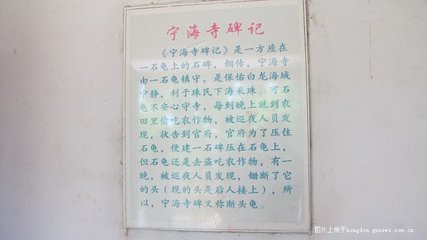 宁海寺碑记
《宁海寺碑记》是一方座在
一石龟上的石碑，相传，宁海寺
由一石龟镇守，是保佑白龙海域
宁静，利于珠民下海采珠。可石
龟不安心守寺，每到晚上就到农
田里偷吃农作物，被巡夜人员发
现，状告到官府，官府为了压住
石龟，便建一石碑压在石龟上，
但石龟还是去盗吃农作物，有一
晚，被巡夜人员发现，锄断了它
的头（现的头是后人接上），所
以，宁海寺碑又称断头龟。
图片上传于hongdou.gxnews.com.cn